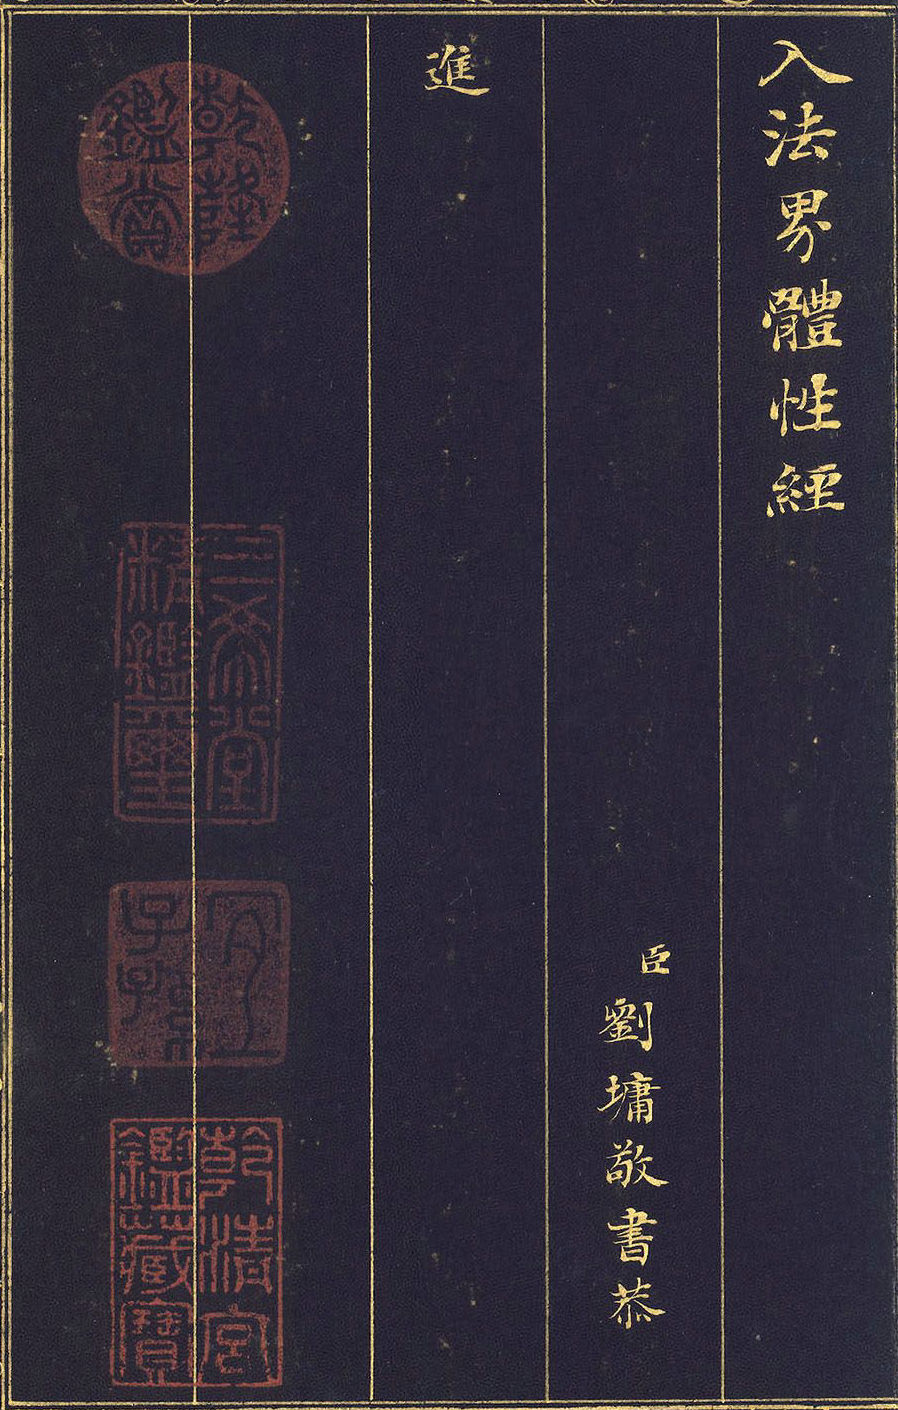 入法界體性經
臣劉墉敬書恭
進
乾隆鑑賞
三希堂精鑑璽
宜子孫
乾清宮鑑藏寶